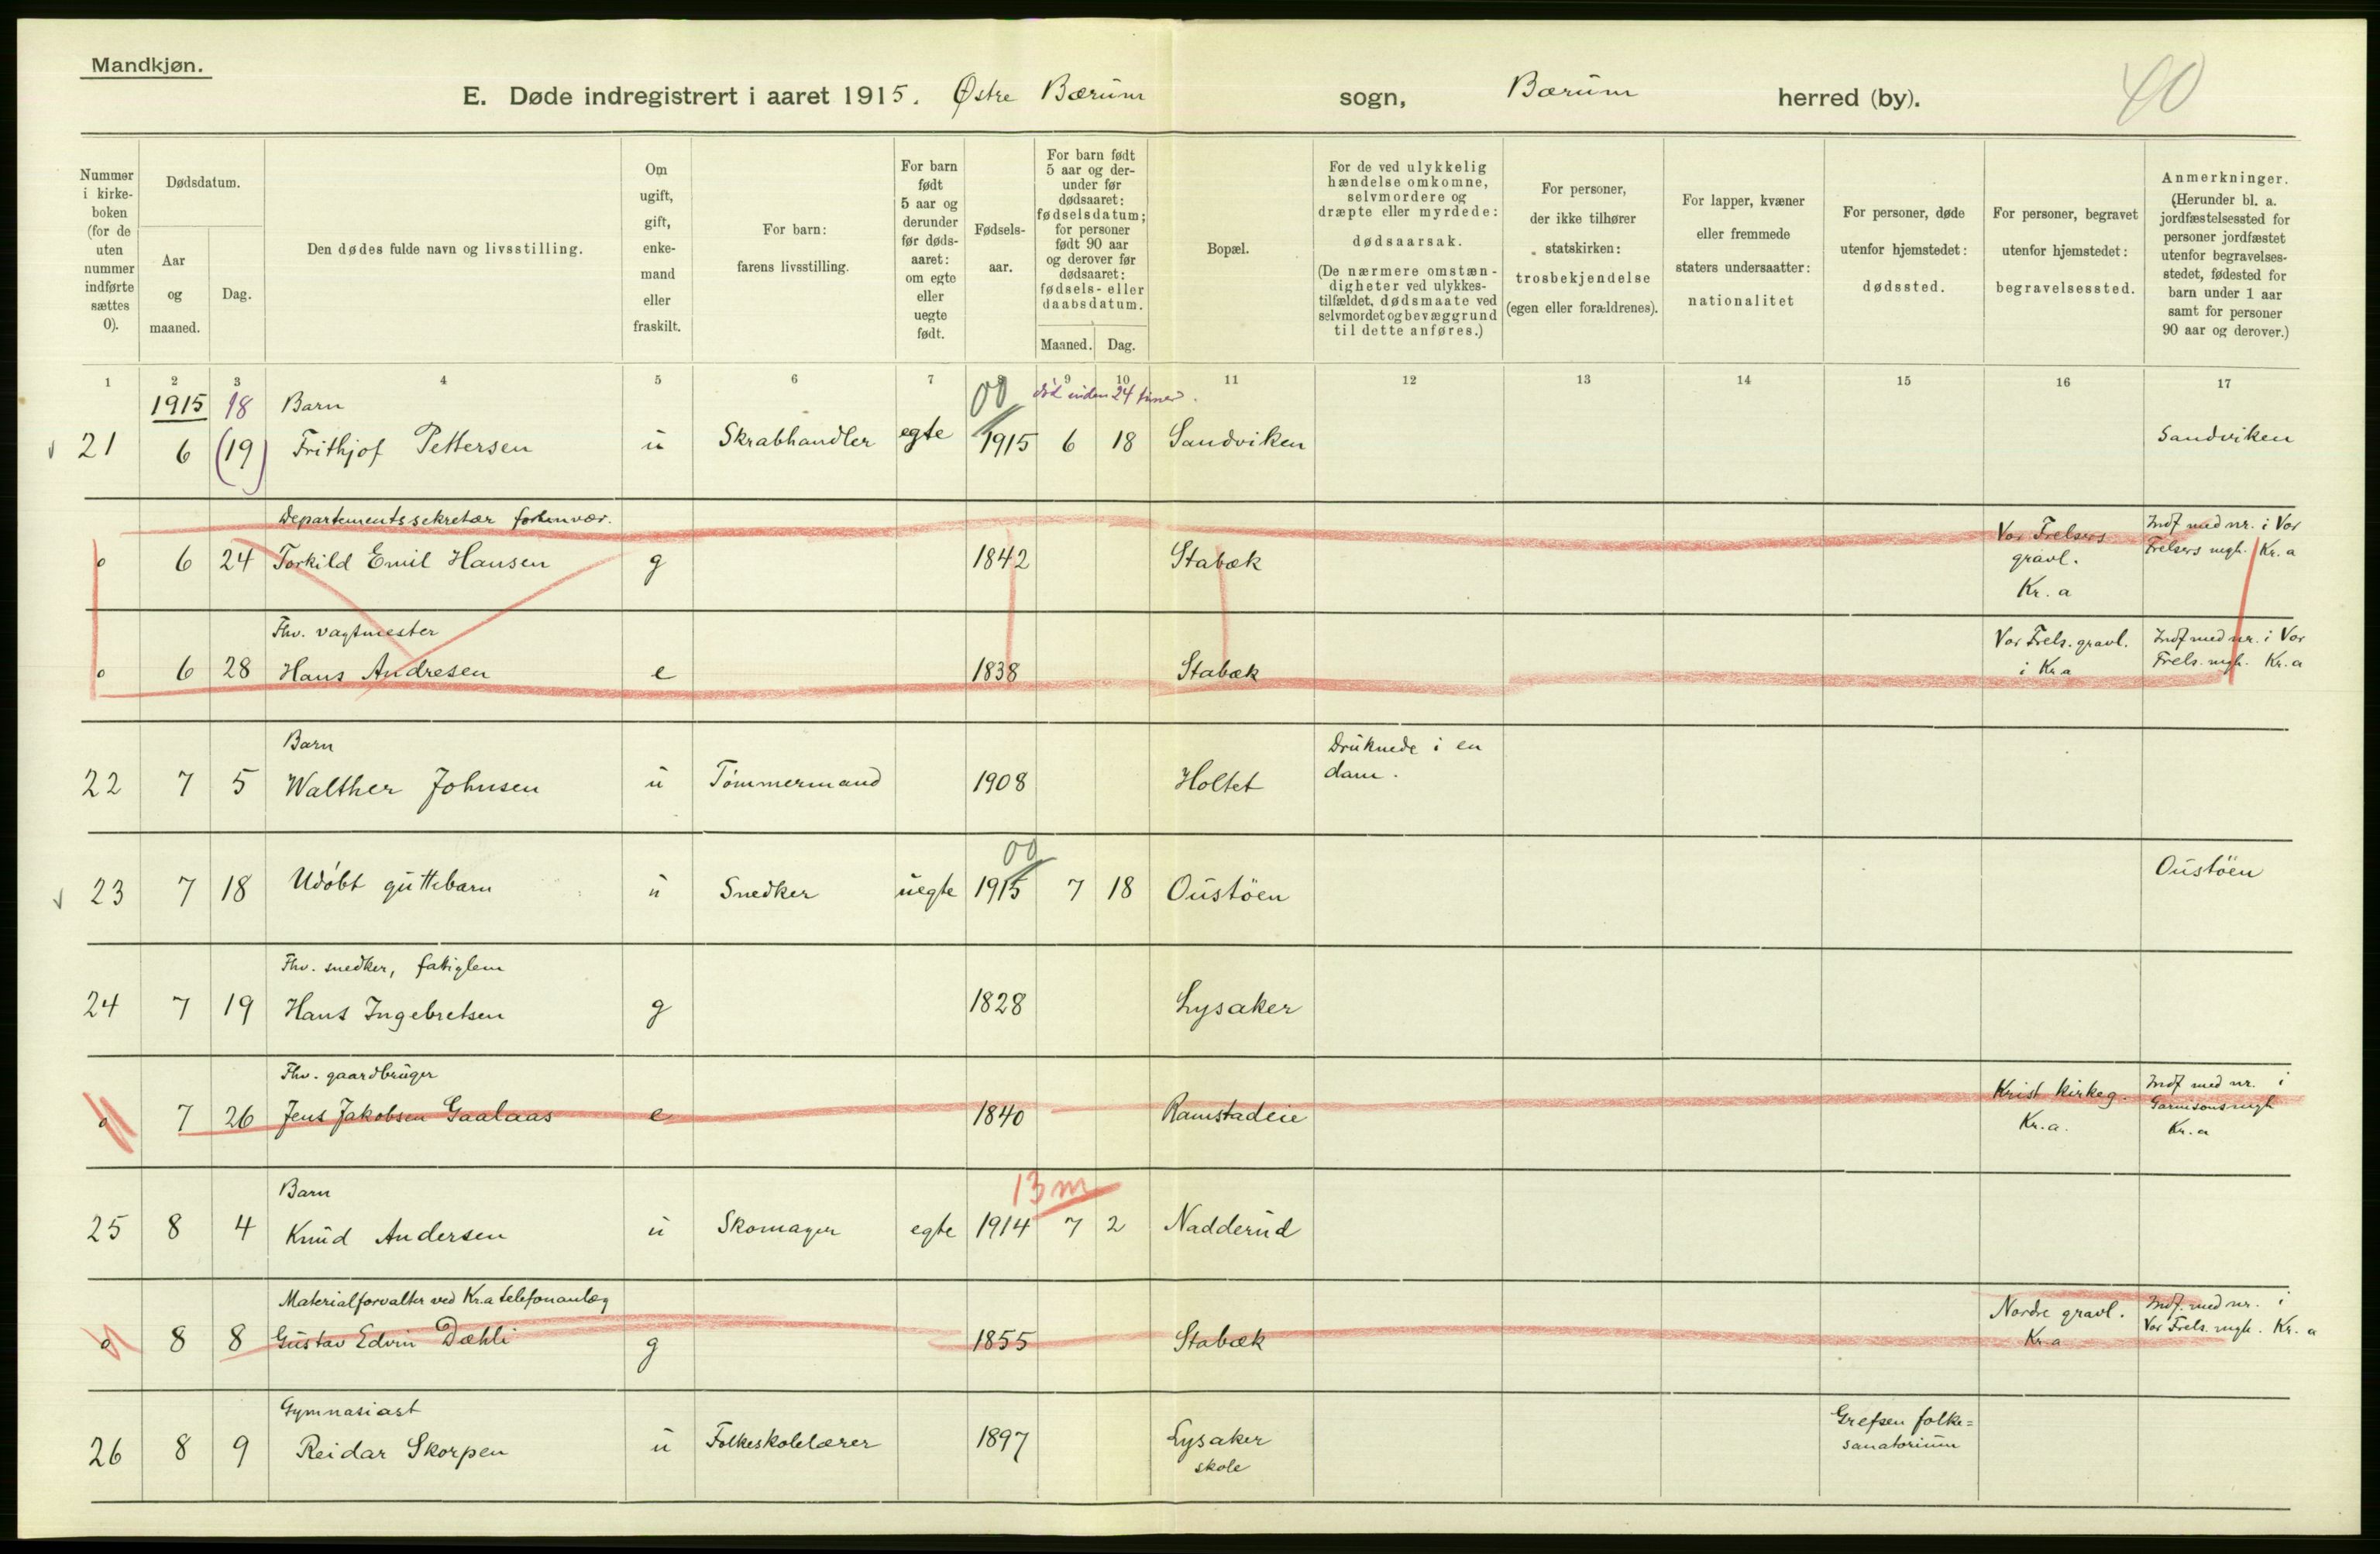 Mandkjøn.
40
E. Døde indregistrert i aaret 1915. Østre Bærum sogn, Bærum herred (by).
Nummer
i kirke-
boken
(for de
uten
nummer
indførte
sættes
0).
Dødsdatum.
Aar
og
maaned.
Dag.
Den dødes fulde navn og livsstilling.
Om
ugift,
gift,
enke-
mand
eller
fraskilt.
For barn:
farens livsstilling.
For barn
født
5 aar og
derunder
før døds-
aaret:
om egte
eller
uegte
født.
Fødsels-
aar.
For barn født
5 aar og der-
under før
dødsaaret:
fødselsdatum;
for personer
født 90 aar
og derover før
dødsaaret:
fødsels- eller
daabsdatum.
Maaned. Dag.
Bopæl.
For de ved ulykkelig
hændelse omkomne,
selvmordere og
dræpte eller myrdede:
dødsaarsak.
(De nærmere omstæn-
digheter ved ulykkes-
tilfældet, dødsmaate ved
selvmordet og bevæggrund
til dette anføres.)
For personer,
der ikke tilhører
statskirken:
trosbekjendelse
(egen eller forældrenes).
For lapper, kvæner
eller fremmede
staters undersaatter:
nationalitet
For personer, døde
utenfor hjemstedet:
dødssted.
For personer, begravet
utenfor hjemstedet:
begravelsessted.
Anmerkninger.
(Herunder bl. a.
jordfæstelsessted for
personer jordfæstet
utenfor begravelses-
stedet, fødested for
barn under 1 aar
samt for personer
90 aar og derover.)
1 2 3 4 5 6 7 8 9 10 11 12 13 14 15 16 17
1915 18 Barn 00 död inden 24 timer.
21 6 (19) Frithjof Pettersen u Skrabhandler egte 1915 6 18 Sandviken Sandviken
Departementssekretær forhenvær.
0 6 24 Torkild Emil Hansen g 1842 Stabæk
Vor Frelsers
gravl.
Kr. a
Indf med nr. i Vor
Frelsers mgh. Kr. a
Fhv. vagtmester
0 6 28 Hans Andresen e 1838 Stabæk
Vor Frels. gravl.
i Kr a
Indf med nr. i Vor
Frels. mgh. Kr. a
Barn
22 7 5 Walther Johnsen u Tömmermand 1908 Holtet
Druknede i en
dam.
00
23 7 18 Udöbt guttebarn u Snedker uegte 1915 7 18 Oustöen Oustöen
Fhv. snedker, fattiglem
24 7 19 Hans Ingebretsen g 1828 Lysaker
Fhv. gaardbruger
0 7 26 Jens Jakobsen Gaalaas e 1840 Ramstadeie
Krist kirkeg.
Kr. a.
Indf med nr. i
Garnisonsmgh
Kr. a
Barn 13 m
25 8 4 Knud Andersen u Skomager egte 1914 7 2 Nadderud
Materialforvalter ved Kr.a telefonanlæg
0 8 8 Gustav Edvin Dæhli g 1855 Stabæk
Nordre gravl.
Kr a
Indf. med nr. i
Vor Frels. mgh. Kr. a
Gymnasiast
26 8 9 Reidar Skorpen u Folkeskolelærer 1897 Lysaker
skole
Grefsen folke=
sanatorium